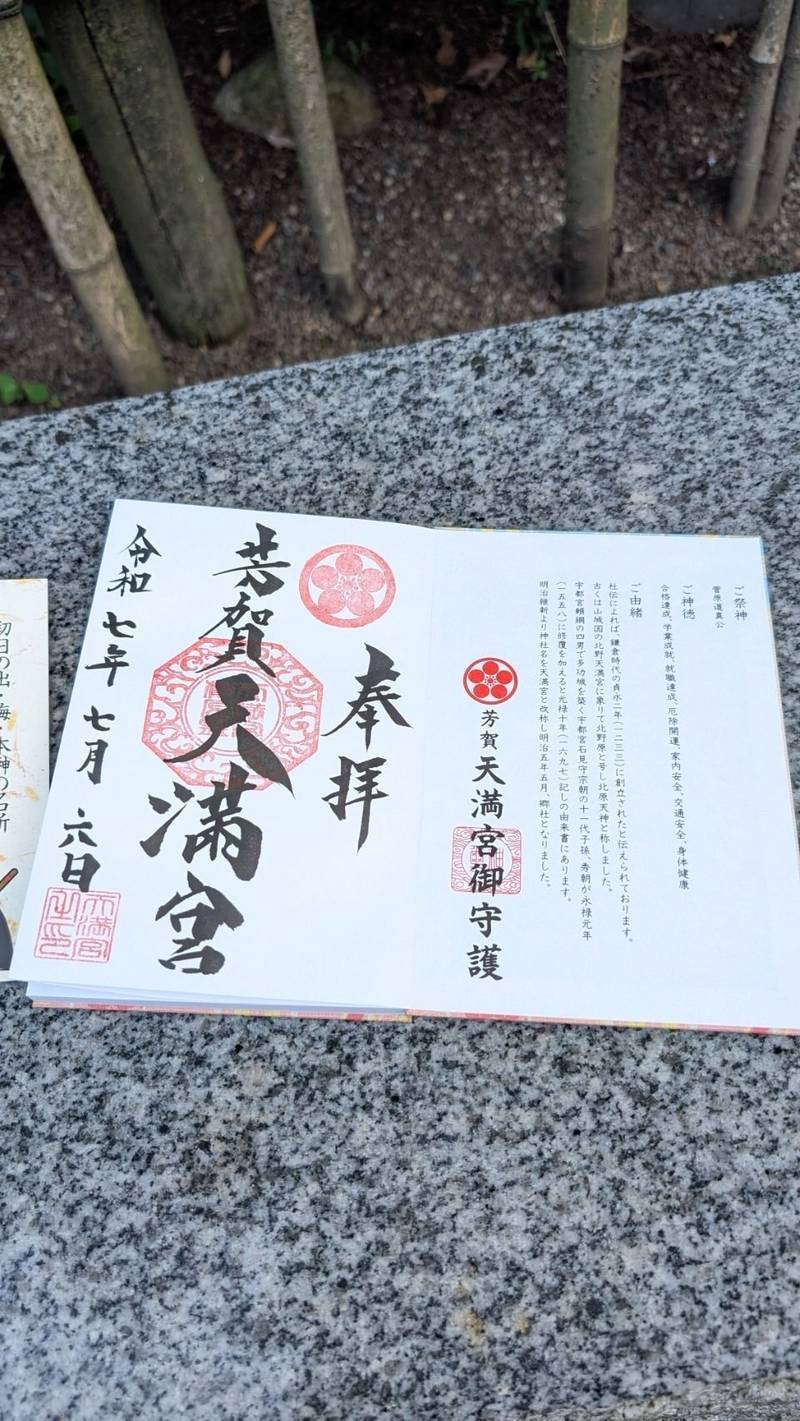 ご祭神
菅原道真公
ご神徳
合格達成、学業成就、就職達成、厄除開運、家内安全、交通安全、身体健康
ご由緒
社伝によれば、鎌倉時代の貞永二年(一二三三)に創立されたと伝えられております。
古くは山城国の北野天満宮に象りて北野原と号し北原天神と称しました。
宇都宮頼綱の四男で多功城を築く宇都宮石見守宗朝の十一代子孫、秀朝が永禄元年
(一五五八)に修覆を加えると元禄十年(一六九七)記しの由来書にあります。
明治維新より神社名を天満宮と改称し明治五年五月、郷社となりました。
芳賀天満宮御守護
奉拝
芳賀天満宮
令和七年七月六日
天満宮
之印
初日の出・海・本神の名所